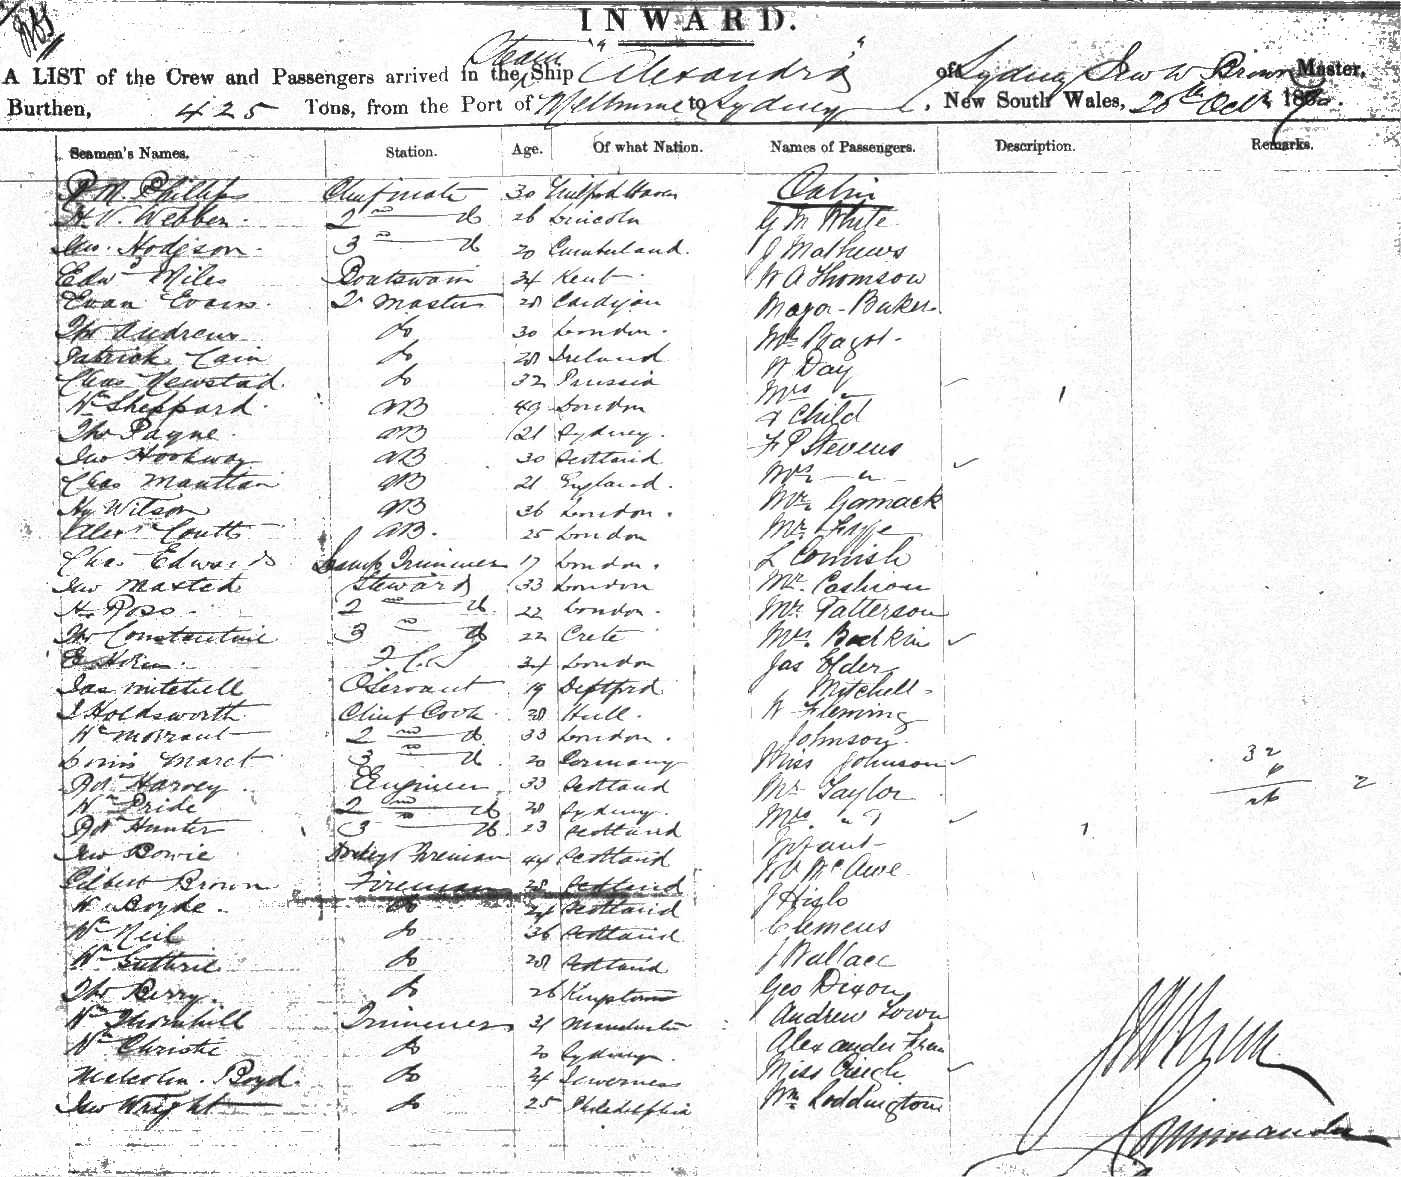 INWARD.
A LIST of the Crew and Passengers arrived in the Steam Ship "Alexandra" of Sydney Jno W Brown Master,
Burthen, 425 Tons, from the Port of Melbourne to Sydney, New South Wales, 20th Octr 18
Seamen's Names. Station. Age. Of what Nation. Names of Passengers. Description. Remarks.
Phillips Chief mate 30 Milford Haven Cabin
H. V. Webber 2nd do 26 Lincoln G M White
Jno. Hodgson 3 do 20 Cumberland J Mathews
Edwd Miles Boatswain 34 Kent W A Thomson
Evan Evans Qr Master 28 Cardigan Major Baker
Thos Andrews do 30 London Mr Bagot
Patrick Cain do 28 Ireland W Day
Chas Newstad do 32 Prussia Mrs " 1
Wm Sheppard AB 49 London & Child
Thos Payne AB 21 Sydney F P Stevens
Jno Hookway AB 30 Scotland Mrs "
Chas AB 21 England Mr Gamack
Hy Witson AB 36 London Mr
Alexr Coutts AB 25 London L Cornish
Chas Edwards Lamp Trimmer 17 London Mr Cashion
Jno Maxted Steward 33 London Mr Patterson
H. Ross 2nd do 22 London Mrs
Thos Constantine 3 do 22 Crete Jas Elder
E 34 London Mitchell
Jas Mitchell O Servant 19 Deptford W Fleming
J Holdsworth Chief Cook 28 Hull Johnson
Wm Morrant 2nd do 33 London Miss Johnson
Louis Maret 3 do 20 Germany Mr Taylor 32
Robt Harvey Engineer 33 Scotland Mrs " 2
Wm Pride 2nd do 28 Sydney Infant
Robt Hunter 3 do 23 Scotland 1
Jno Bowie Donkey Fireman 44 Scotland
Gilbert Brown Fireman 28 Scotland J Hislo
W Boyde do 24 Scotland Clemens
Wm Neil do 36 Scotland J Wallace
Wm Guthrie do 28 Scotland Geo Dixon
Thos Berry do 26 Kingstown Andrew Lown
Wm Thornhill Trimmers 31 Manchester Alexander
Wm Christie do 20 Sydney Miss
Malcolm Boyd do 24 Inverness Wm Loddington
Jno Wright do 25 Philadelphia
Commander